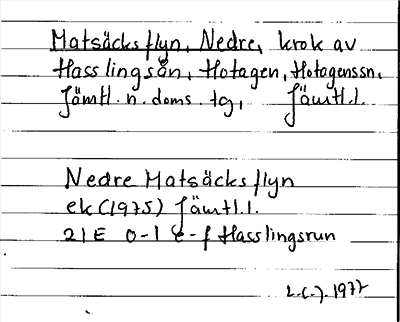 Matsäcksflyn, Nedre, krok av
Hasslingsån, Hotagen, Hotagenssn,
Jämtl. n. doms. tg, Jämtl.l.
Nedre Matsäcksflyn
ek (1975) Jämtl.l.
21E 0-1 e-f Hasslingsrun
1977